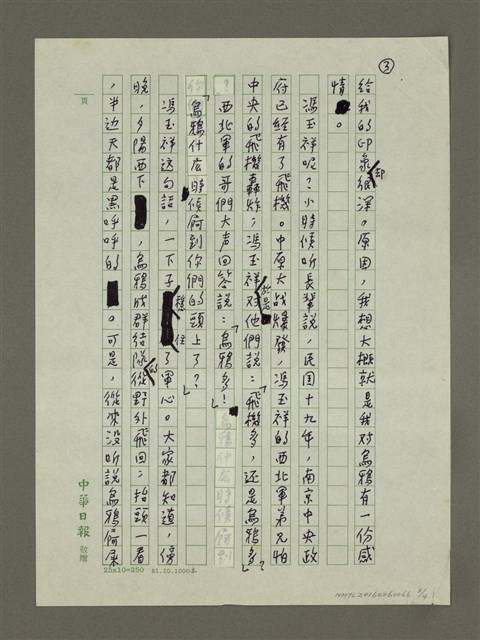 ③
給我的印象卻很深。原因,我想大概就是我对烏鴉有一份感
情。
馮玉祥呢?小時候听長輩說,民国十九年,南京中央政
府已經有了飛機。中原大战爆發,馮玉祥的西北軍弟兄怕
中央的飛機轟炸;馮玉祥於是对他們說:「飛機多,还是烏鴉多
?」西北軍的哥們大声回答說:「烏鴉多!」
「烏鴉什広時候屙到你們的頭上了?」
馮玉祥这句話,一下子穩住了軍心。大家都知道,傍
晚,夕陽西下,烏鴉成群結隊的從野外飛回;抬頭一看
,半边天都是黑呼呼的。可是,從來没听說烏鴉屙屎
頁
中華日報 敬贈
25x10=250 81.10.1000本
NMTL20160260066 3/4